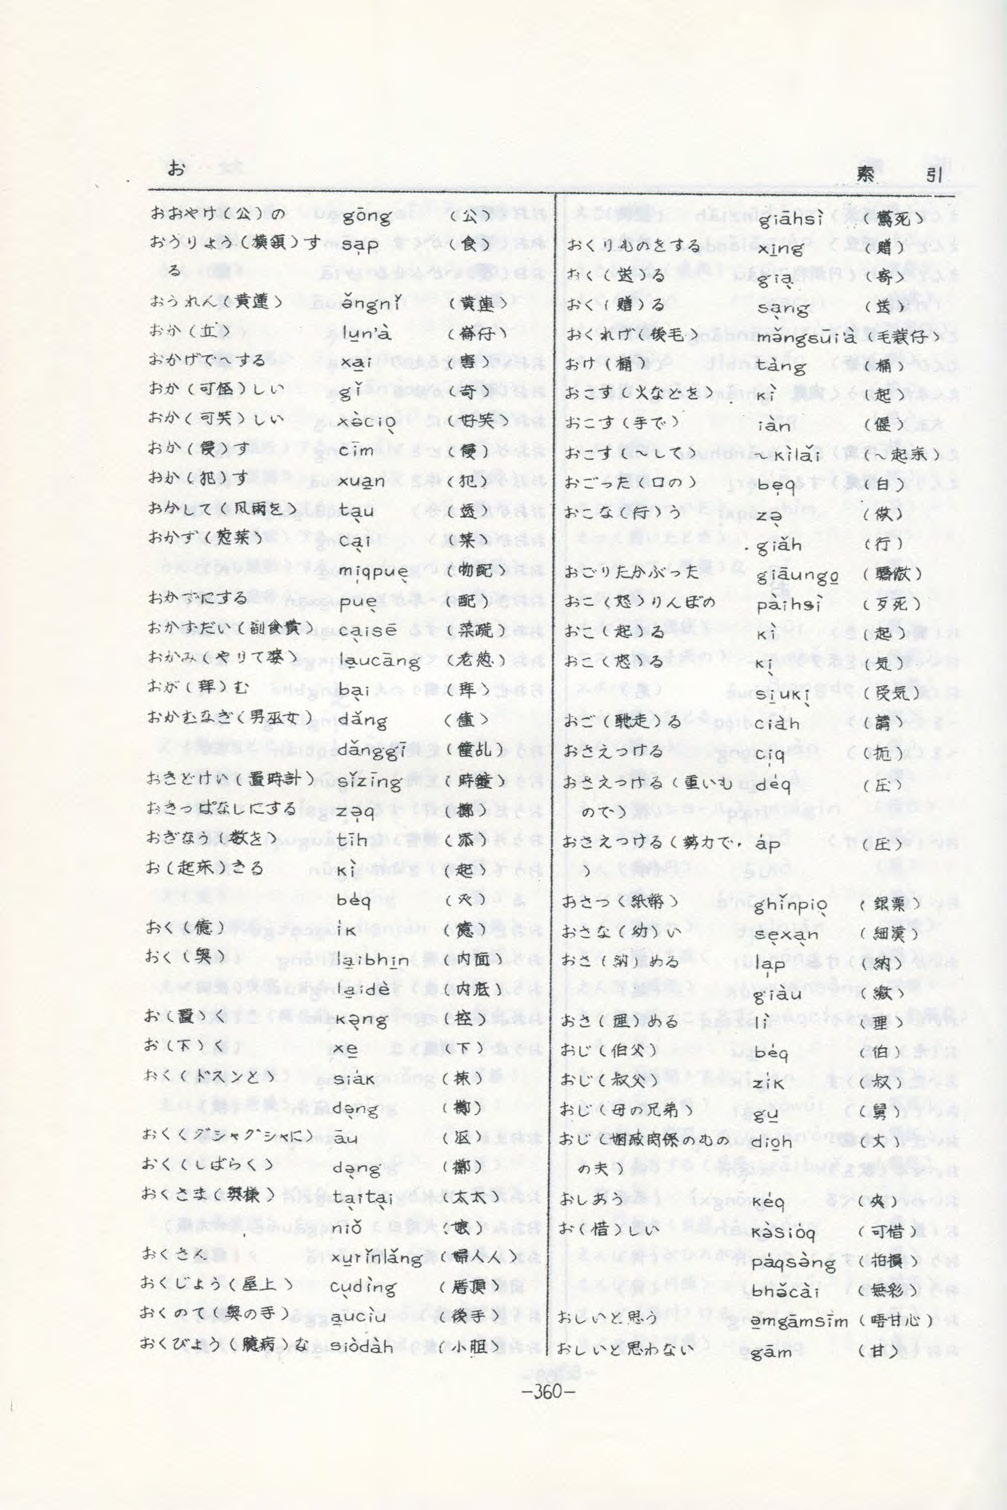 お
索 引
おおやけ(公)の gōng (公)
おうりょう(横領)す sạp (食)
る
おうれん(黄蓮) ə̌ngnǐ (黄蓮)
おか(丘) lu̱n'à (崙仔)
おかげでxする xa̱i (害)
おか(可怪)しい gǐ (奇)
おか(可笑)しい xə̀ciọ (好笑)
おか(侵)す cīm (侵)
おか(犯)す xua̱n (犯)
おかして(風雨を) tạu (透)
おかず(惣菜) cại (菜)
mịqpuẹ (物配)
おかずにする puẹ (配)
おかずだい(副食費) cạisē (菜疏)
おかみ(やりて婆) la̱ucāng (老葱)
おが(拝)む bại (拜)
おかむなぎ(男巫女) dǎng (僮)
dǎnggī (僮乩)
おきどけい(置時計) sǐzīng (時鐘)
おきっぱなしにする zə̣q (擲)
おぎな(う数を) tīh (添)
お(起床)きる kì (起)
béq (
おく(憶) ík (憶)
おく(奥) la̱ibhi̱n (内面)
la̱idè (内底)
お(置)く kə̣ng (控)
お(下)く xe̱ (下)
おく(ドスンと) siák (
də̣ng (擲)
おく(グシャグシャに) āu (
おく(しばらく) də̣ng (擲)
おくさま(奥様) tạịtại (太太)
niǒ (娘)
おくさん xu̱rǐnlǎng (婦人人)
おくじょう(屋上) cụdìng (厝頂)
おくのて(奥の手) a̱uciù (後手)
おくびょう(臆病)な siòdàh (小胆)
giāhsì (驚死)
おくりものをする xi̱ng (贈)
おく(送)る giạ (寄)
おく(贈)る sạng (送)
おくれげ(後毛) mə̌ngsūi'à (毛蓑仔)
おけ(桶) tàng (桶)
おこす(火などを) kì (起)
おこす(手で) iàn (偃)
おこす(〜して) 〜kìlǎi (〜起来)
おごった(口の) bẹq (白)
おこな(行)う zə̣ (做)
giǎh (行)
おごりたかぶった giāungo̱ (驕傲)
おこ(怒)りんぼの pàihsì (歹死)
おこ(起)る kì (起)
おこ(怒)る kị (気)
si̱ukị (受気)
おご(馳走)る ciàh (請)
おさえつける cịq (扼)
おさえつける(重いも déq (圧)
ので)
おさえつける(勢力で áp (圧)
)
おさつ(紙幣) ghǐnpiọ (銀票)
おさな(幼)い sẹxạn (細漢)
おさ(納)める lạp (納)
giàu (繳)
おさ(理)める lì (理)
おじ(伯父) béq (伯)
おじ(叔父) zík (叔)
おじ(母の兄弟) gu̱ (舅)
おじ(姻戚関係のもの dio̱h (丈)
の夫)
おしあう kéq (夾)
お(惜)しい kə̀sióq (可惜)
pàqsə̀ng (拍損)
bhə̌cài (無彩)
おしいと思う ə̱mgāmsīm (唔甘心)
おしいと思わない gām (甘)
-360-